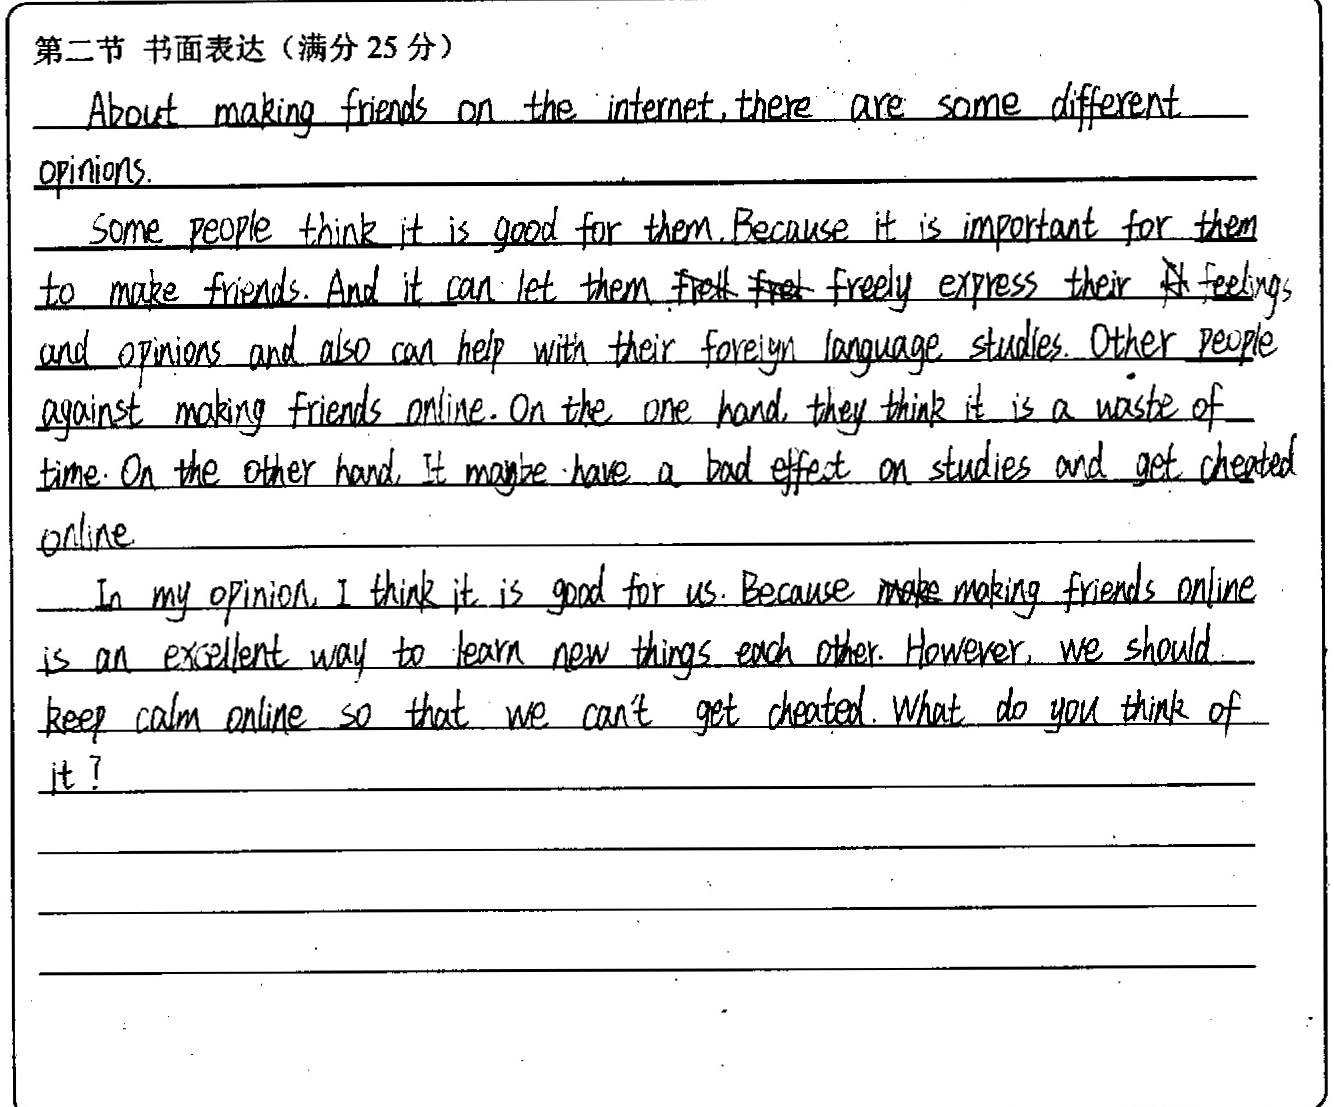 第二节 书面表达（满分 25 分）
About making friends on the internet, there are some different
opinions.
Some people think it is good for them. Because it is important for them
to make friends. And it can let them freely express their feelings
and opinions and also can help with their foreign language studies. Other people
against making friends online. On the one hand, they think it is a waste of
time. On the other hand, It maybe have a bad effect on studies and get cheated
online
In my opinion, I think it is good for us. Because making friends online
is an excellent way to learn new things each other. However, we should
keep calm online so that we can't get cheated. What do you think of
it?